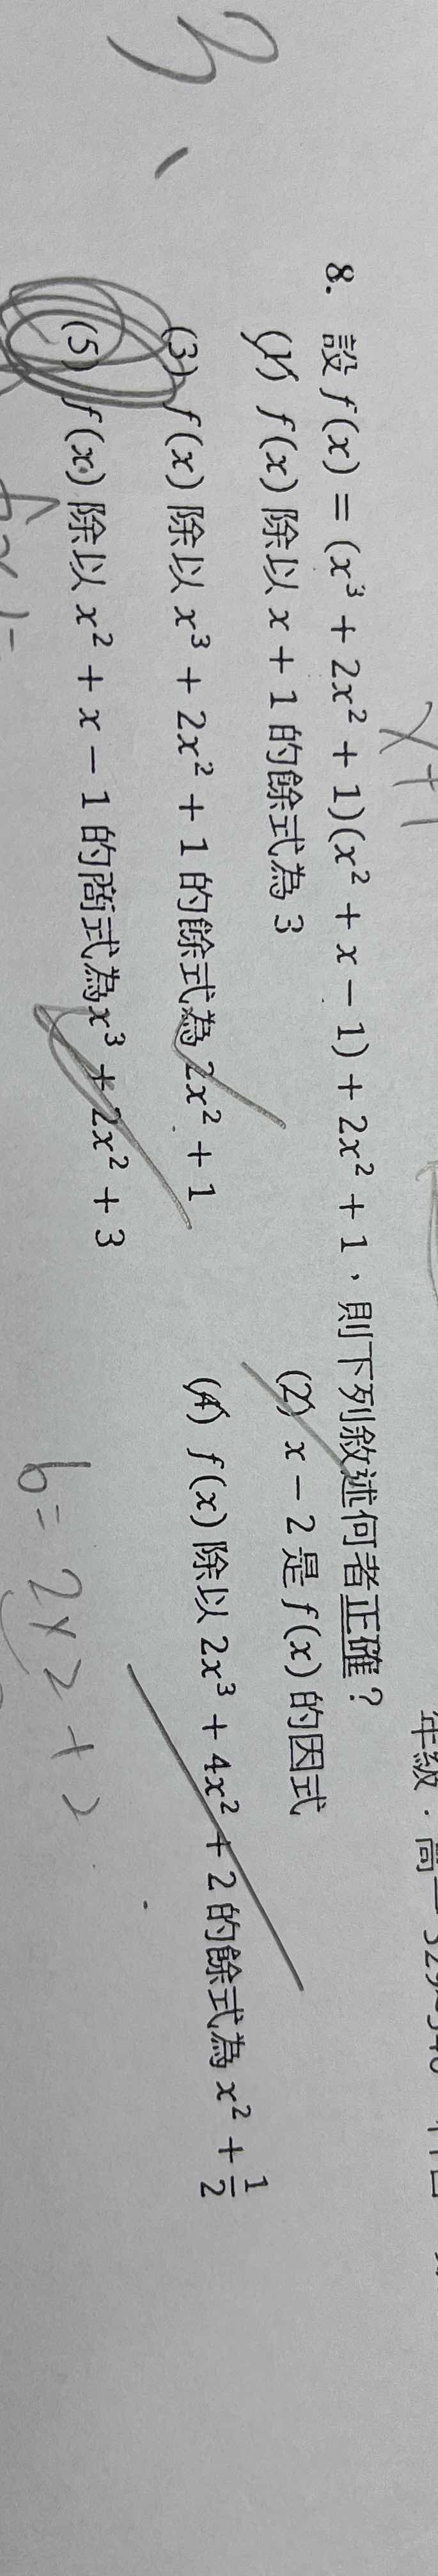 3、
x+1
年級．高一
8. 設 f(x) = (x³ + 2x² + 1)(x² + x − 1) + 2x² + 1，則下列敘述何者正確？
(1) f(x) 除以 x + 1 的餘式為 3
(2) x − 2 是 f(x) 的因式
(3) f(x) 除以 x³ + 2x² + 1 的餘式為 2x² + 1
(4) f(x) 除以 2x³ + 4x² + 2 的餘式為 x² + 1/2
(5) f(x) 除以 x² + x − 1 的商式為 x³ + 2x² + 3